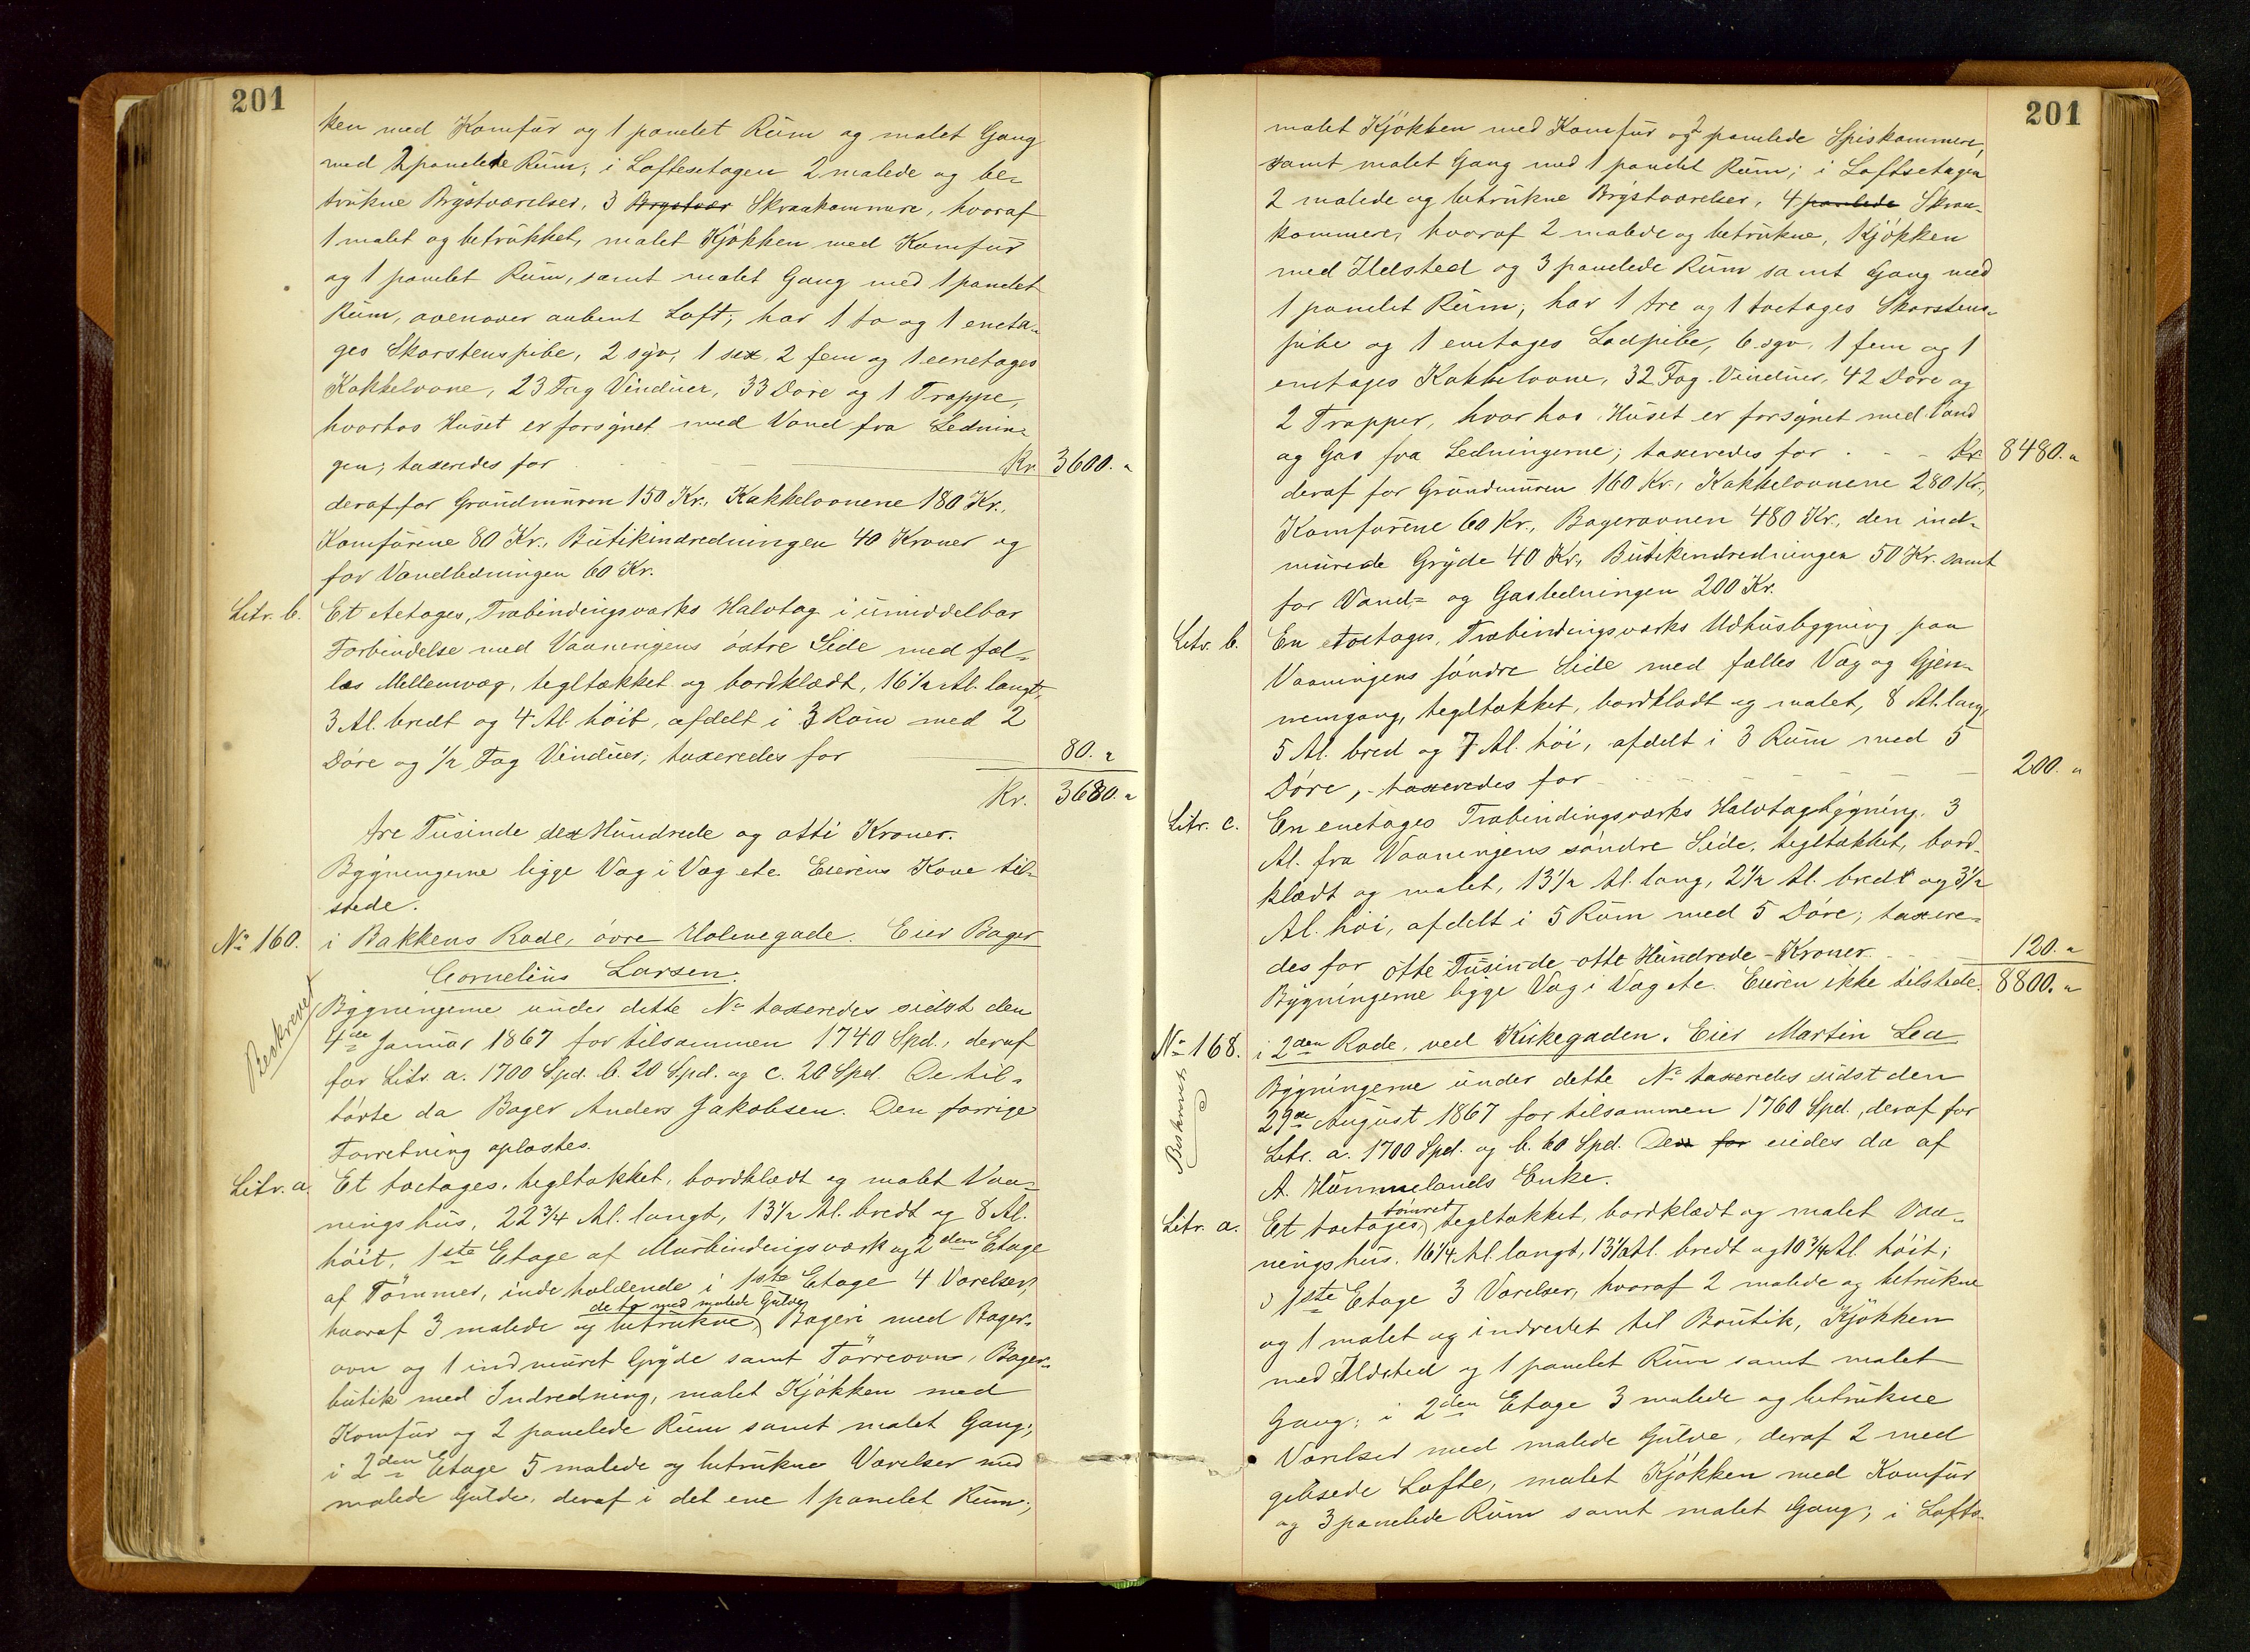 201
ken med Komfür og 1 panelet Rüm og malet Gang
med 2 panelede Rüm; i Loftsetagen 2 malede og be-
trükne Brÿstværelser, 3 Brystvær Skraakammere, hvoraf
1 malet og betrükket, malet Kjökken med Komfür
og 1 panelet Rüm, samt malet Gang med 1 panelet
Rüm, ovenover aabent Loft; har 1 to og 1 eneta-
ges Skorstenspibe, 2 syv, 1 sex, 2 fem og 1 eenetages
Kakkelovne, 23 Fag Vindüer, 33 Döre og 1 Trappe,
hvorhos Hüset er forsÿnet med Vand fra Lednin-
gen; taxeredes for Kr. 3600. "
deraf for Gründmüren 150 Kr., Kakkelovnene 180 Kr.,
Komfürene 80 Kr., Bütikindredningen 40 Kroner og
for Vandledningen 60 Kr.
Litr. b. Et etetages, Træbindingsværks Halvtag i ümiddelbar
Forbindelse med Vaaningens östre Side med fæl-
les Mellemvæg, tegltækket og bordklædt, 16 1/2 Al. langt,
3 Al. bredt og 4 Al. höit, afdelt i 3 Rüm med 2
Döre og 1/2 Fag Vindüer; taxeredes for 80. "
Kr. 3680. "
tre Tüsinde sex Hündrede og otti Kroner.
Bÿgningerne ligge Væg i Væg etc. Eierens Kone til-
stede.
No 160. i Bakkens Rode, övre Holmegade. Eier Bager
Cornelius Larsen.
Beskrevet
Bÿgningerne under dette No taxeredes sidst den
4de Januar 1867 for tilsammen 1740 Spd., deraf
for Litr. a. 1700 Spd. b. 20 Spd. og c. 20 Spd. De til-
hörte da Bager Anders Jakobsen. Den forrige
Forretning oplæstes.
Litr. a. Et toetages, tegltækket, bordklædt og malet Vaa-
ningshüs, 22 3/4 Al. langt, 13 1/2 Al. bredt og 8 Al.
höit, 1ste Etage af Mürbindingsværk og 2den Etage
af Tömmer, indeholdende i 1ste Etage 4 Værelser,
de to med malede Gülve
hvoraf 3 malede og betrükne, Bageri med Bager-
ovn og 1 indmüret Grÿde samt Törreovn, Bager-
bütik med Indredning, malet Kjökken med
Komfür og 2 panelede Rüm samt malet Gang;
i 2den Etage 5 malede og betrükne Værelser med
malede Gülve, deraf i det ene 1 panelet Rüm;
201
malet Kjökken med Komfür og 2 panelede Spiskammere,
samt malet Gang med 1 panelet Rüm; i Loftsetagen
2 malede og betrükne Brÿstværelser, 4 panelede Skraa-
kammere, hvoraf 2 malede og betrükne, 1 Kjökken
med Ildsted og 3 panelede Rüm samt Gang med
1 panelet Rüm; har 1 tre og 1 toetages Skorstens-
pibe og 1 enetages Lodpibe, 6 syv, 1 fem og 1
enetages Kakkelovne, 32 Fag Vindüer, 42 Döre og
2 Trapper, hvorhos Hüset er forsÿnet med Vand
og Gas fra Ledningerne; taxeredes for Kr. 8480. "
deraf for Gründmüren 160 Kr., Kakkelovnene 280 Kr.,
Komfürene 60 Kr., Bagerovnen 480 Kr., den ind-
mürede Grÿde 40 Kr., Bütikindredningen 50 Kr. samt
for Vand- og Gasledningen 200 Kr.
Litr. b. En toetages, Træbindingsværks Udhüsbygning paa
Vaaningens söndre Side med fælles Væg og Gjen-
nemgang, tegltækket, bordklædt og malet, 8 Al. lang,
5 Al. bred og 7 Al. höi, afdelt i 3 Rüm med 5
Döre, taxeredes for 200. "
Litr. c. En enetages Træbindingsværks Halvtagsbÿgning, 3
Al. fra Vaaningens söndre Side, tegltækket, bord-
klædt og malet, 13 1/2 Al. lang, 2 1/2 Al. bredt og 3 1/2
Al. höi, afdelt i 5 Rüm med 5 Döre; taxere-
des for 120. "
otte Tüsinde otte Hündrede Kroner
Bÿgningerne ligge Væg i Væg etc. Eieren ikke tilstede. 8800. "
No 168. i 2den Rode, ved Kirkegaden. Eier Martin Lea
Beskrevet
Bÿgningerne under dette No taxeredes sidst den
29de August 1867 for tilsammen 1760 Spd., deraf for
Litr. a. 1700 Spd. og b. 60 Spd. Den for eiedes da af
A. Hümmelands Enke.
tömret
Litr. a. Et toetages, tegltækket, bordklædt og malet Vaa-
ningshüs, 16 1/4 Al. langt, 13 1/2 Al. bredt og 10 3/4 Al. höit;
i 1ste Etage 3 Værelser, hvoraf 2 malede og betrükne
og 1 malet og indredet til Bütik, Kjökken
med Ildsted og 1 panelet Rüm samt malet
Gang; i 2den Etage 3 malede og betrükne
Værelser med malede Gülve, deraf 2 med
gibsede Lofte, malet Kjökken med Komfür
og 3 panelede Rüm samt malet Gang; i Lofts-